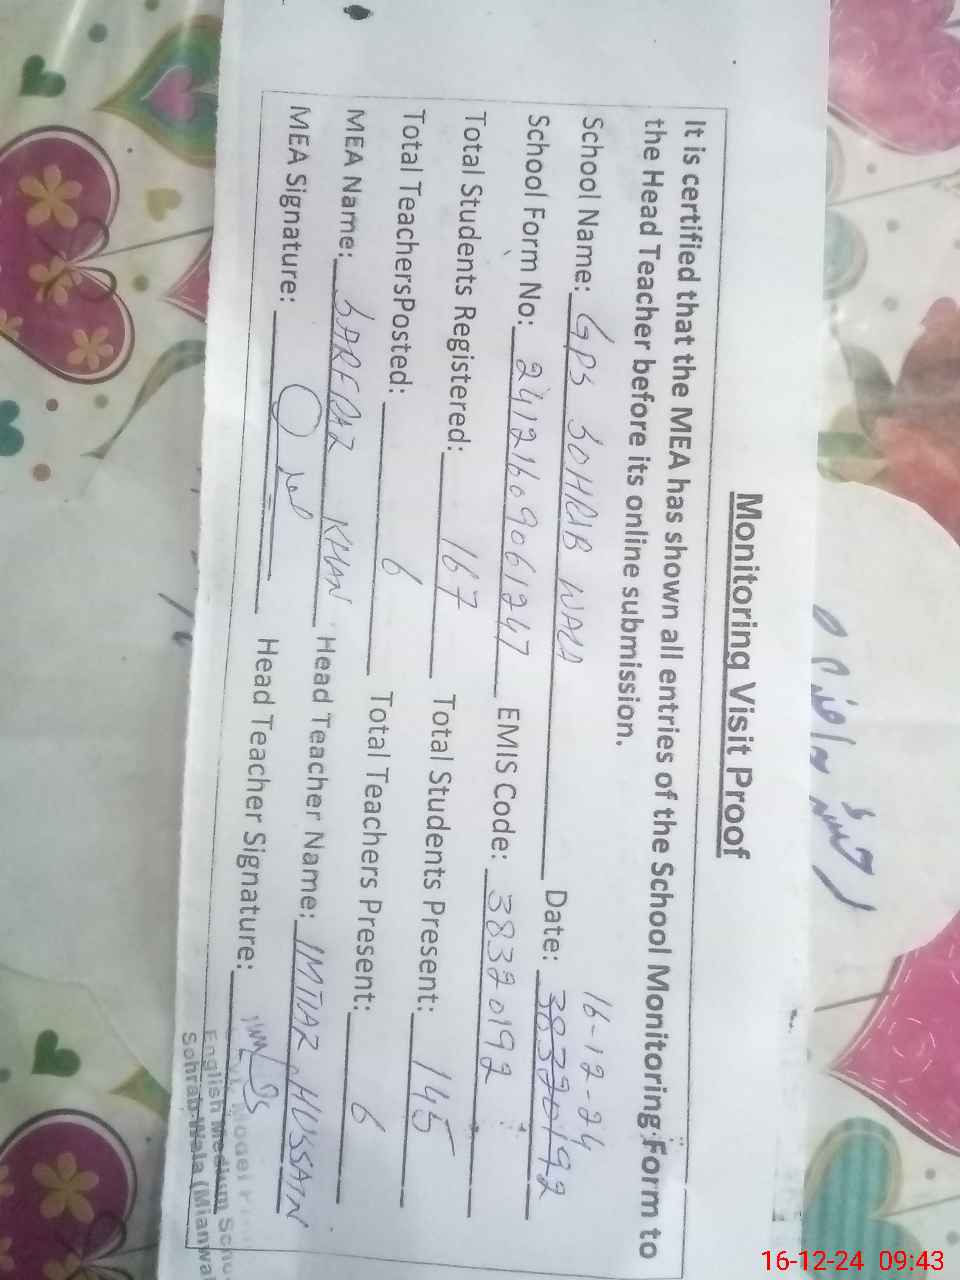 Monitoring Visit Proof
It is certified that the MEA has shown all entries of the School Monitoring Form to
the Head Teacher before its online submission.
School Name: GPS SOHRAB WALA Date: 16-12-24 38320192
School Form No: 24121609061247 EMIS Code: 38320192
Total Students Registered: 167 Total Students Present: 145
Total TeachersPosted: 6 Total Teachers Present: 6
MEA Name: SARFRAZ KHAN Head Teacher Name: IMTIAZ HUSSAIN
MEA Signature: Head Teacher Signature:
Model
English Medium
Sohrab Wala (Mianwal
16-12-24 09:43